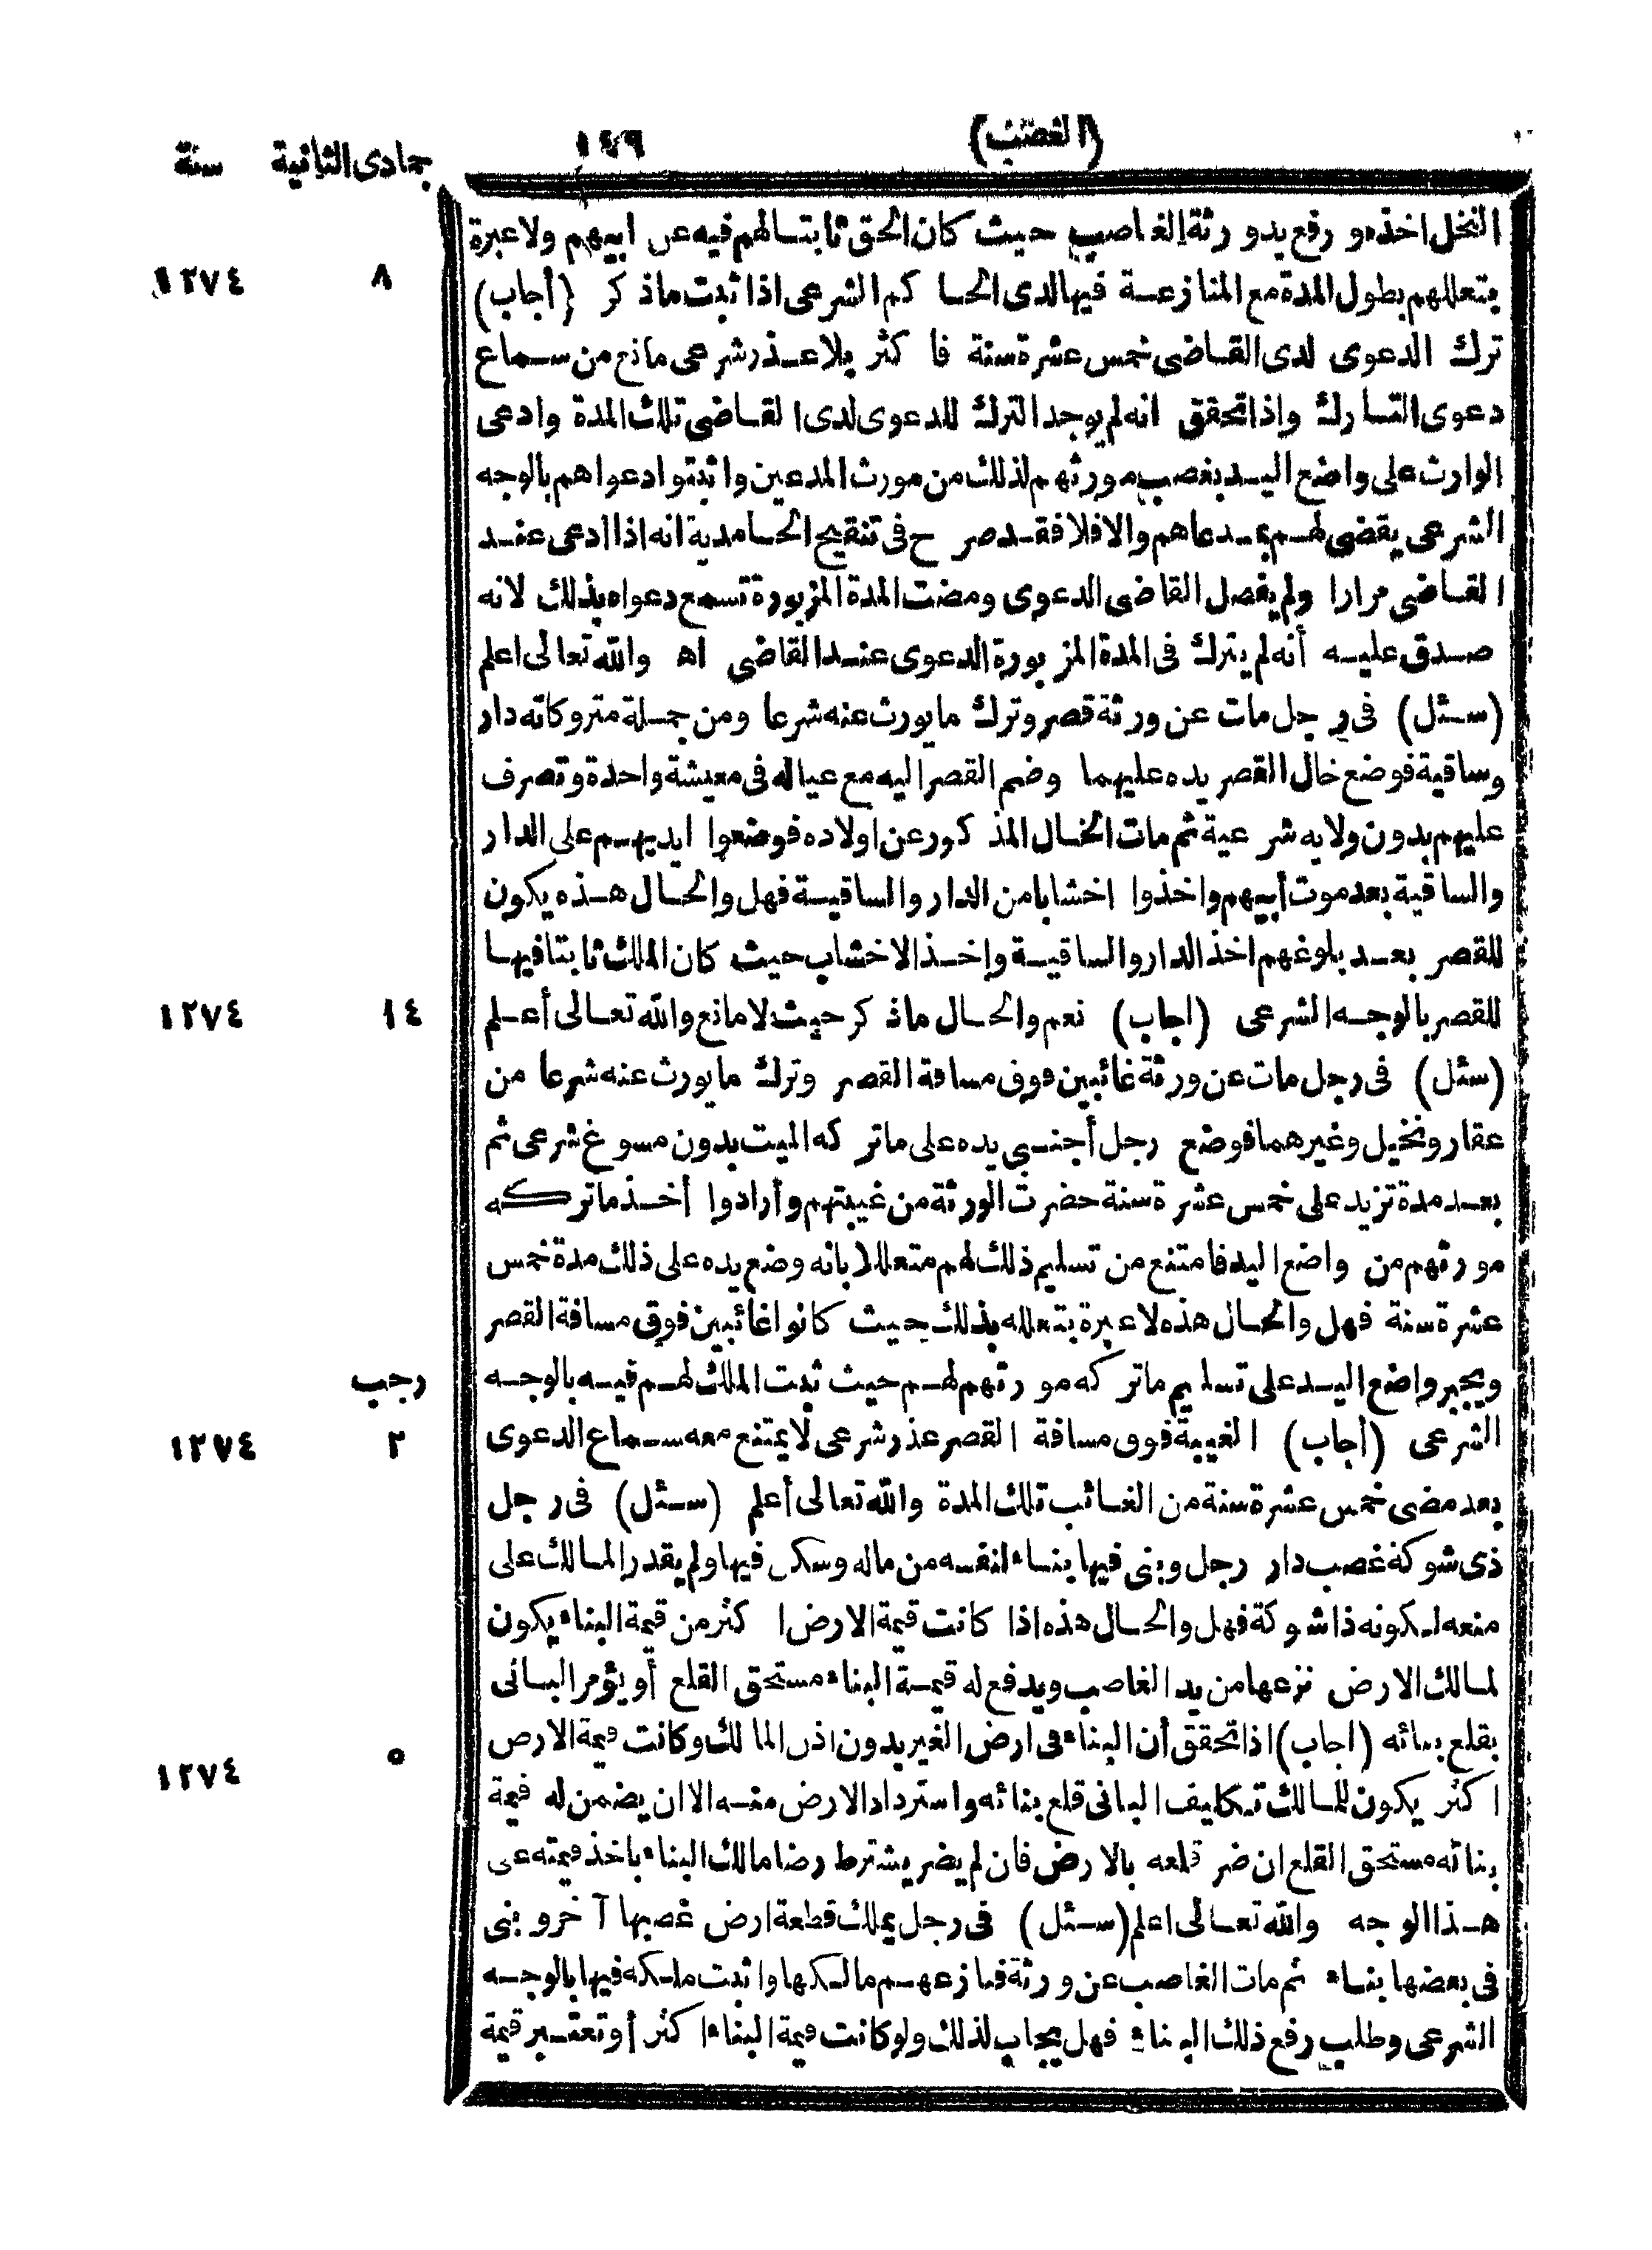 (الغصب) ١٤٩ جمادى الثانية سنة
النخل اخذه ورفع يد ورثة الغاصب حيث كان الحق ثابتا لهم فيه عن ابيهم ولا عبرة
بتعللهم بطول المدة مع المنازعة فيها لدى الحاكم الشرعى اذا ثبت ماذكر (أجاب) ٨ ١٢٧٤
ترك الدعوى لدى القاضى خمس عشرة سنة فاكثر بلا عذر شرعى مانع من سماع
دعوى التارك واذا تحقق انه لم يوجد الترك للدعوى لدى القاضى تلك المدة وادعى
الوارث على واضع اليد بغصب مورثهم لذلك من مورث المدعين واثبتوا دعواهم بالوجه
الشرعى يقضى لهم بمدعاهم والا فلا فقد صرح فى تنقيح الحامدية انه اذا ادعى عند
القاضى مرارا ولم يفصل القاضى الدعوى ومضت المدة المزبورة تسمع دعواه بذلك لانه
صدق عليه أنه لم يترك فى المدة المزبورة الدعوى عند القاضى اه والله تعالى اعلم
(سئل) فى رجل مات عن ورثة قصر وترك ما يورث عنه شرعا ومن جملة متروكاته دار
وساقية فوضع خال القصر يده عليهما وضم القصر اليه مع عياله فى معيشة واحدة وتصرف
عليهم بدون ولايه شرعية ثم مات الخال المذكور عن اولاده فوضعوا ايديهم على الدار
والساقية بعد موت أبيهم واخذوا اخشابا من الدار والساقية فهل والحال هذه يكون
للقصر بعد بلوغهم اخذ الدار والساقية واخذ الاخشاب حيث كان الملك ثابتا فيها
للقصر بالوجه الشرعى (اجاب) نعم والحال ماذكر حيث لا مانع والله تعالى أعلم ١٤ ١٢٧٤
(سئل) فى رجل مات عن ورثة غائبين فوق مسافة القصر وترك ما يورث عنه شرعا من
عقار ونخيل وغيرهما فوضع رجل أجنبى يده على ماتركه الميت بدون مسوغ شرعى ثم
بعد مدة تزيد على خمس عشرة سنة حضرت الورثة من غيبتهم وأرادوا أخذ ماتركه
مورثهم من واضع اليد فامتنع من تسليم ذلك لهم متعللا بانه وضع يده على ذلك مدة خمس
عشرة سنة فهل والحال هذه لا عبرة بتعلله بذلك حيث كانوا غائبين فوق مسافة القصر
ويجبر واضع اليد على تسليم ماتركه مورثهم لهم حيث ثبت الملك لهم فيه بالوجه رجب
الشرعى (أجاب) الغيبة فوق مسافة القصر عذر شرعى لا يمتنع معه سماع الدعوى ٢ ١٢٧٤
بعد مضى خمس عشرة سنة من الغائب تلك المدة والله تعالى أعلم (سئل) فى رجل
ذى شوكة غصب دار رجل وبنى فيها بناء لنفسه من ماله وسكن فيها ولم يقدر المالك على
منعه لكونه ذا شوكة فهل والحال هذه اذا كانت قيمة الارض اكثر من قيمة البناء يكون
لمالك الارض نزعها من يد الغاصب ويدفع له قيمة البناء مستحق القلع أو يؤمر البانى
بقلع بنائه (اجاب) اذا تحقق أن البناء فى ارض الغير بدون اذن المالك وكانت قيمة الارض ٥
اكثر يكون للمالك تكليف البانى قلع بنائه واسترداد الارض منه الا ان يضمن له قيمة ١٢٧٤
بنائه مستحق القلع ان ضر قلعه بالارض فان لم يضر يشترط رضا مالك البناء باخذ قيمته على
هذا الوجه والله تعالى اعلم (سئل) فى رجل يملك قطعة ارض غصبها آخر وبنى
فى بعضها بناء ثم مات الغاصب عن ورثة فنازعهم مالكها واثبت ملكه فيها بالوجه
الشرعى وطلب رفع ذلك البناء فهل يجاب لذلك ولو كانت قيمة البناء اكثر أو تعتبر قيمة